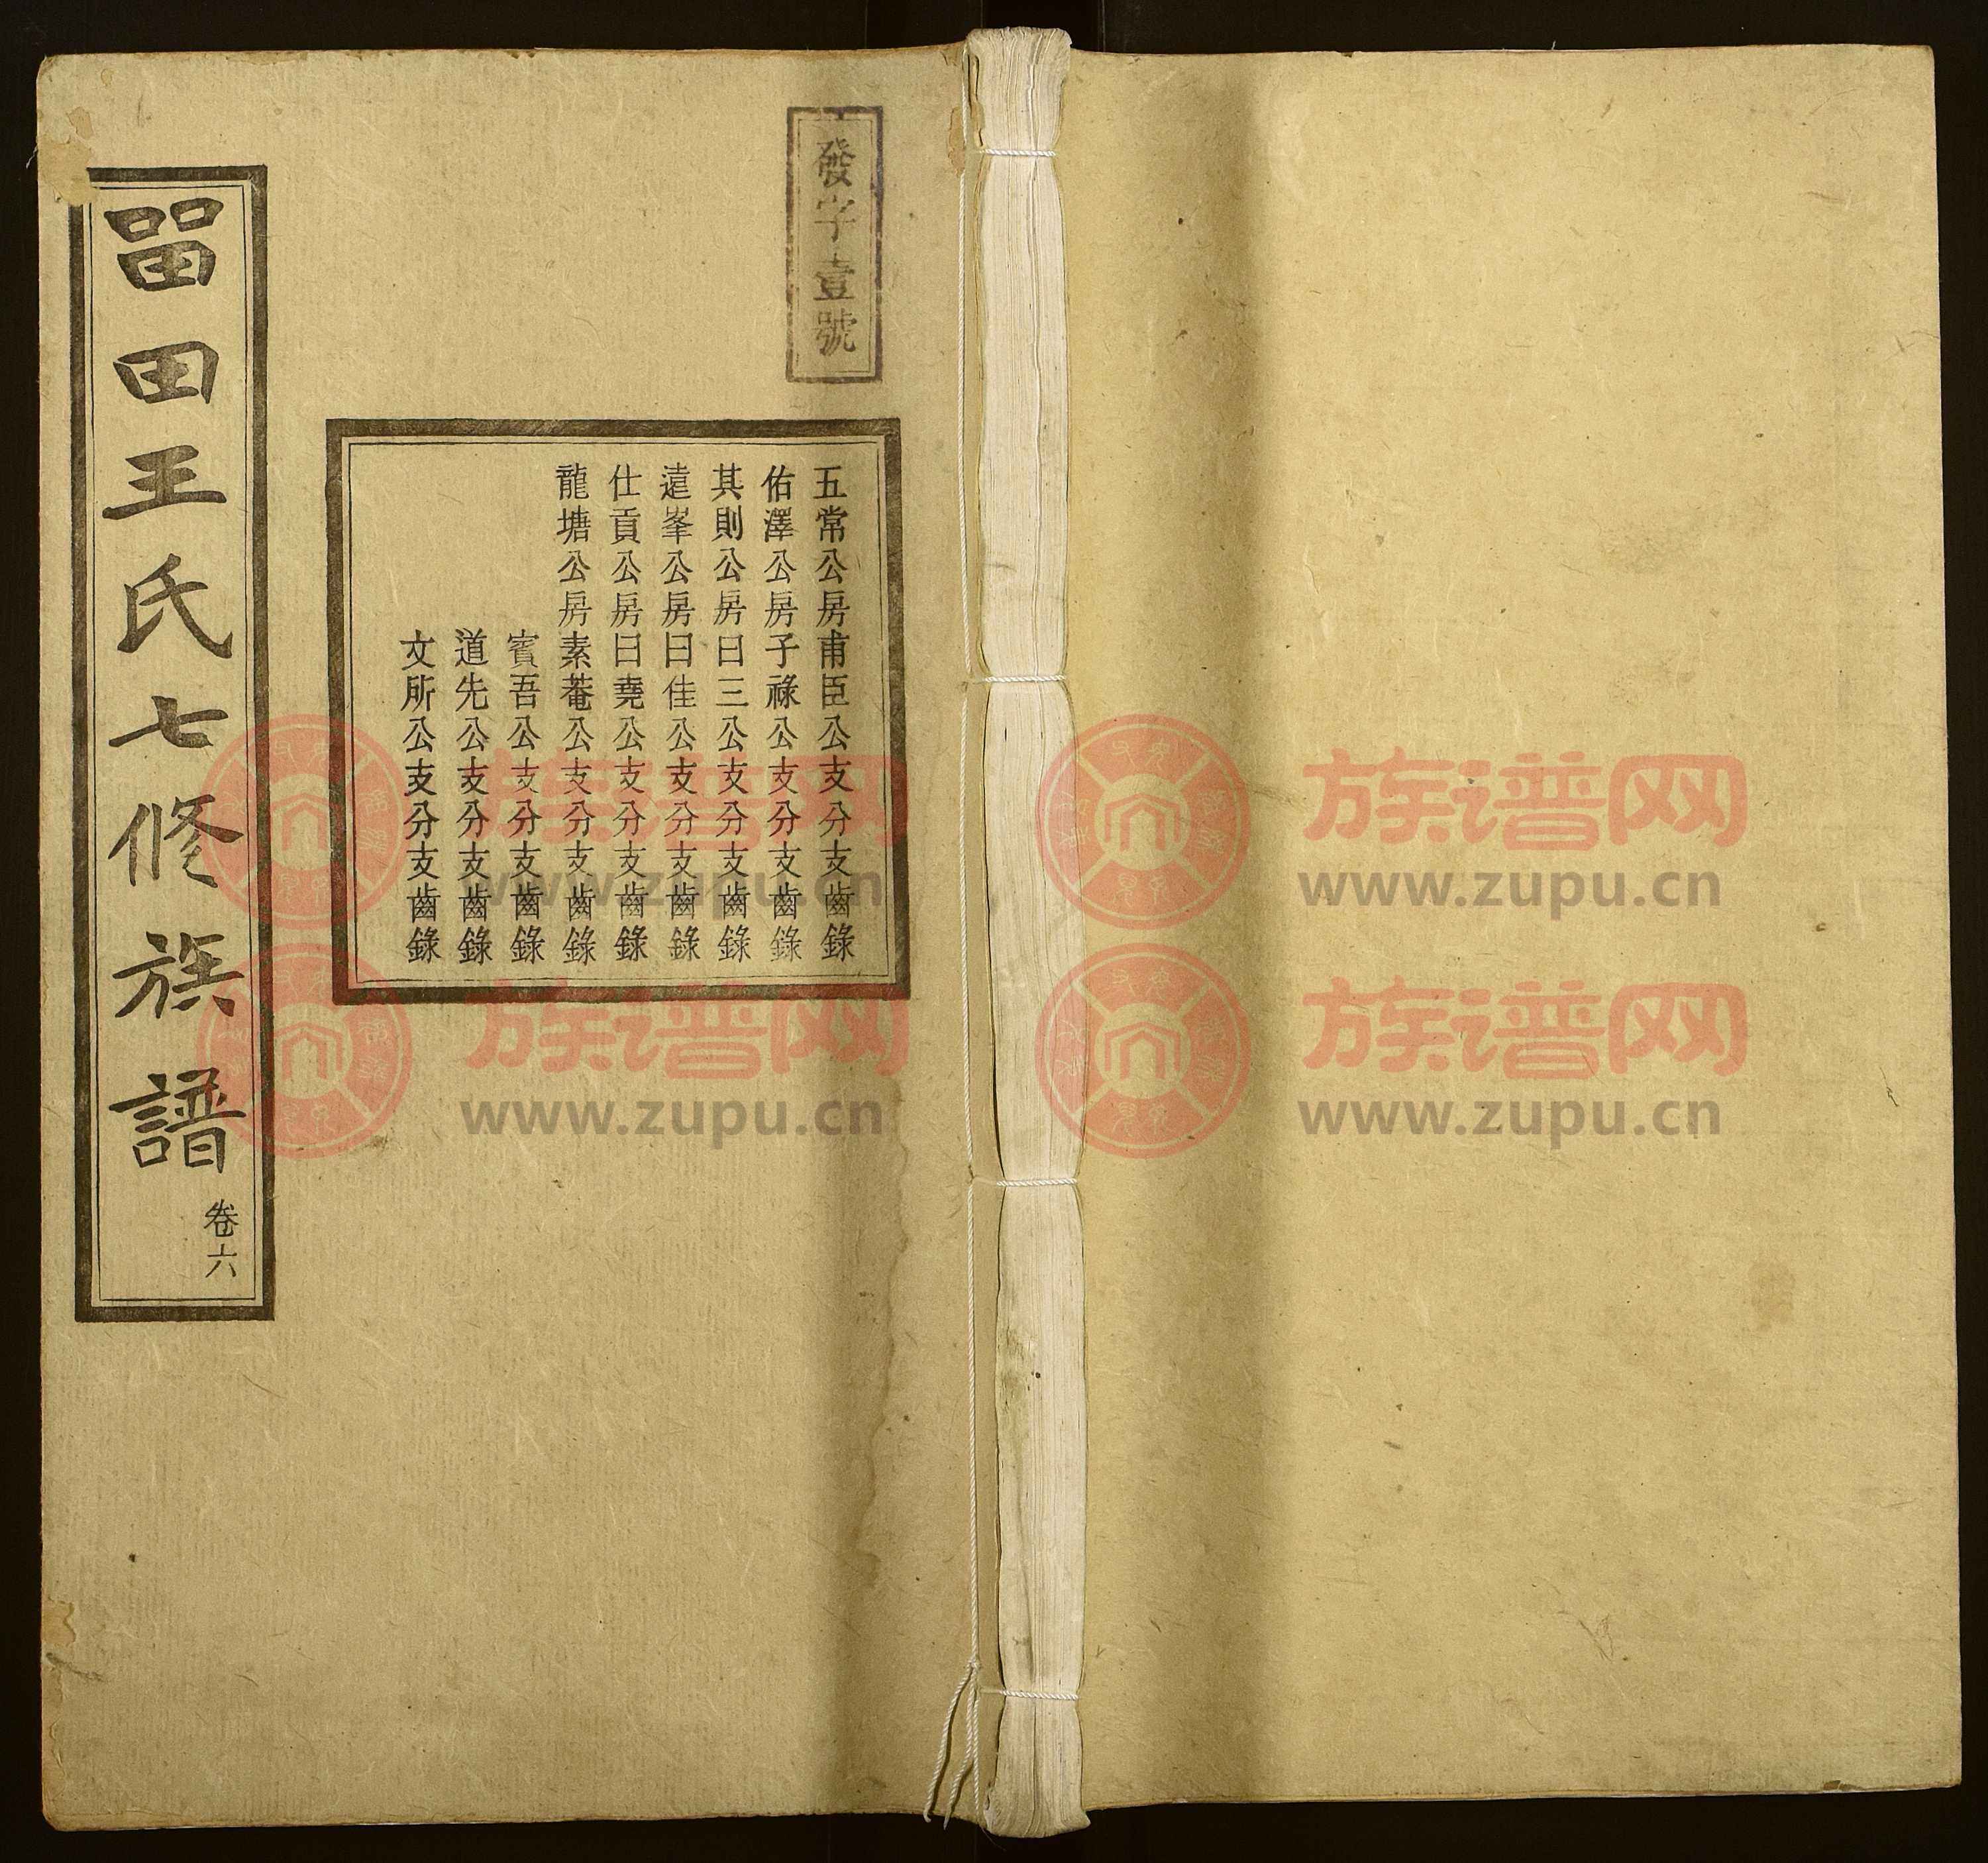 發字壹號
五常公房甫臣公支分支齒錄
佑澤公房子祿公支分支齒錄
其則公房曰三公支分支齒錄
遠峯公房曰佳公支分支齒錄
仕貢公房曰堯公支分支齒錄
龍塘公房素菴公支分支齒錄
賓吾公支分支齒錄
道先公支分支齒錄
文所公支分支齒錄
畱田王氏七修族譜
卷六
族谱网
www.zupu.cn
族谱网
www.zupu.cn
族谱网
www.zupu.cn
族谱网
www.zupu.cn